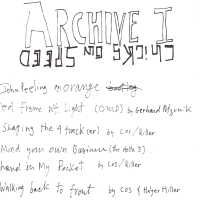 ARCHIVE I
CHICKS ON SPEED
John Peeling on orange
Red Frame W. Light (OMD) by Gerhard Potzunik
Shaging the 4 track(er) by COS/Miller
Mind your own Business (the delta 5)
hand in My Pocket by COS/Miller
Walking back to front by COS & Holger Hiller